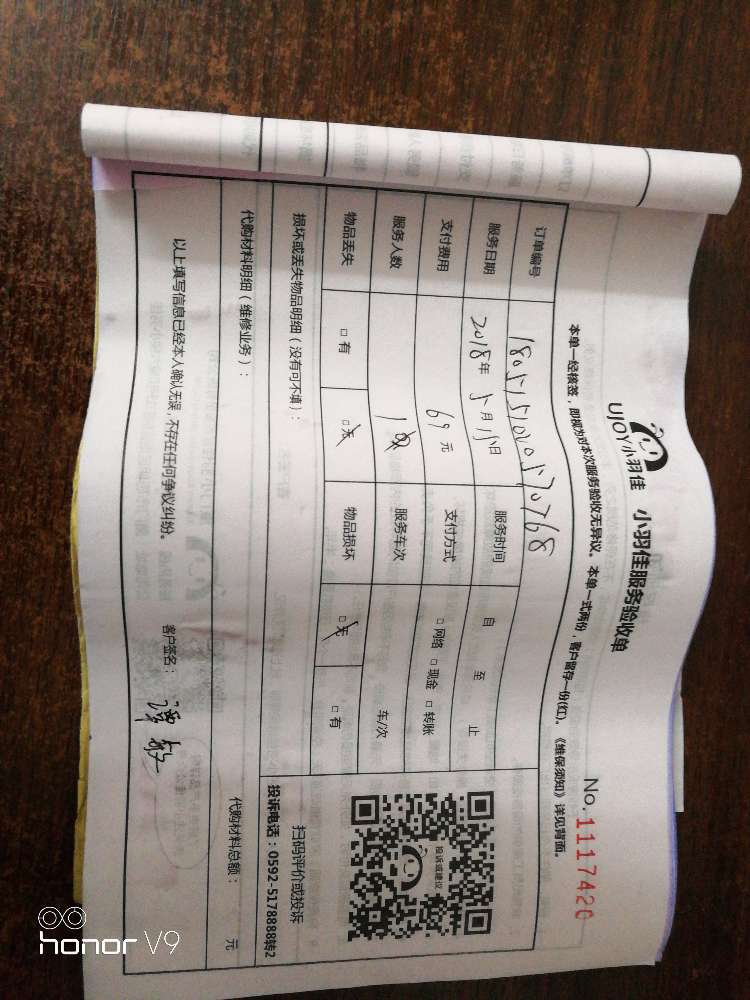 UJOY小羽佳 小羽佳服务验收单
No.1117420
本单一经核签，即视为对本次服务验收无异议。本单一式两份，客户留存一份(红)。《维保须知》详见背面。
订单编号 1805151020570768
服务日期 2018年 5月 15日 服务时间 自 至 止
支付费用 69元 支付方式 □网络 □现金 □转账
服务人数 1 服务车次 车/次
物品丢失 □有 □无 物品损坏 □无 □有
损坏或丢失物品明细（没有可不填）：
投诉或建议
扫码评价或投诉
投诉电话：0592-5178888转2
代购材料明细（维修业务）：
代购材料总额： 元
以上填写信息已经本人确认无误，不存在任何争议纠纷。 客户签名： 潭敏
honor V9